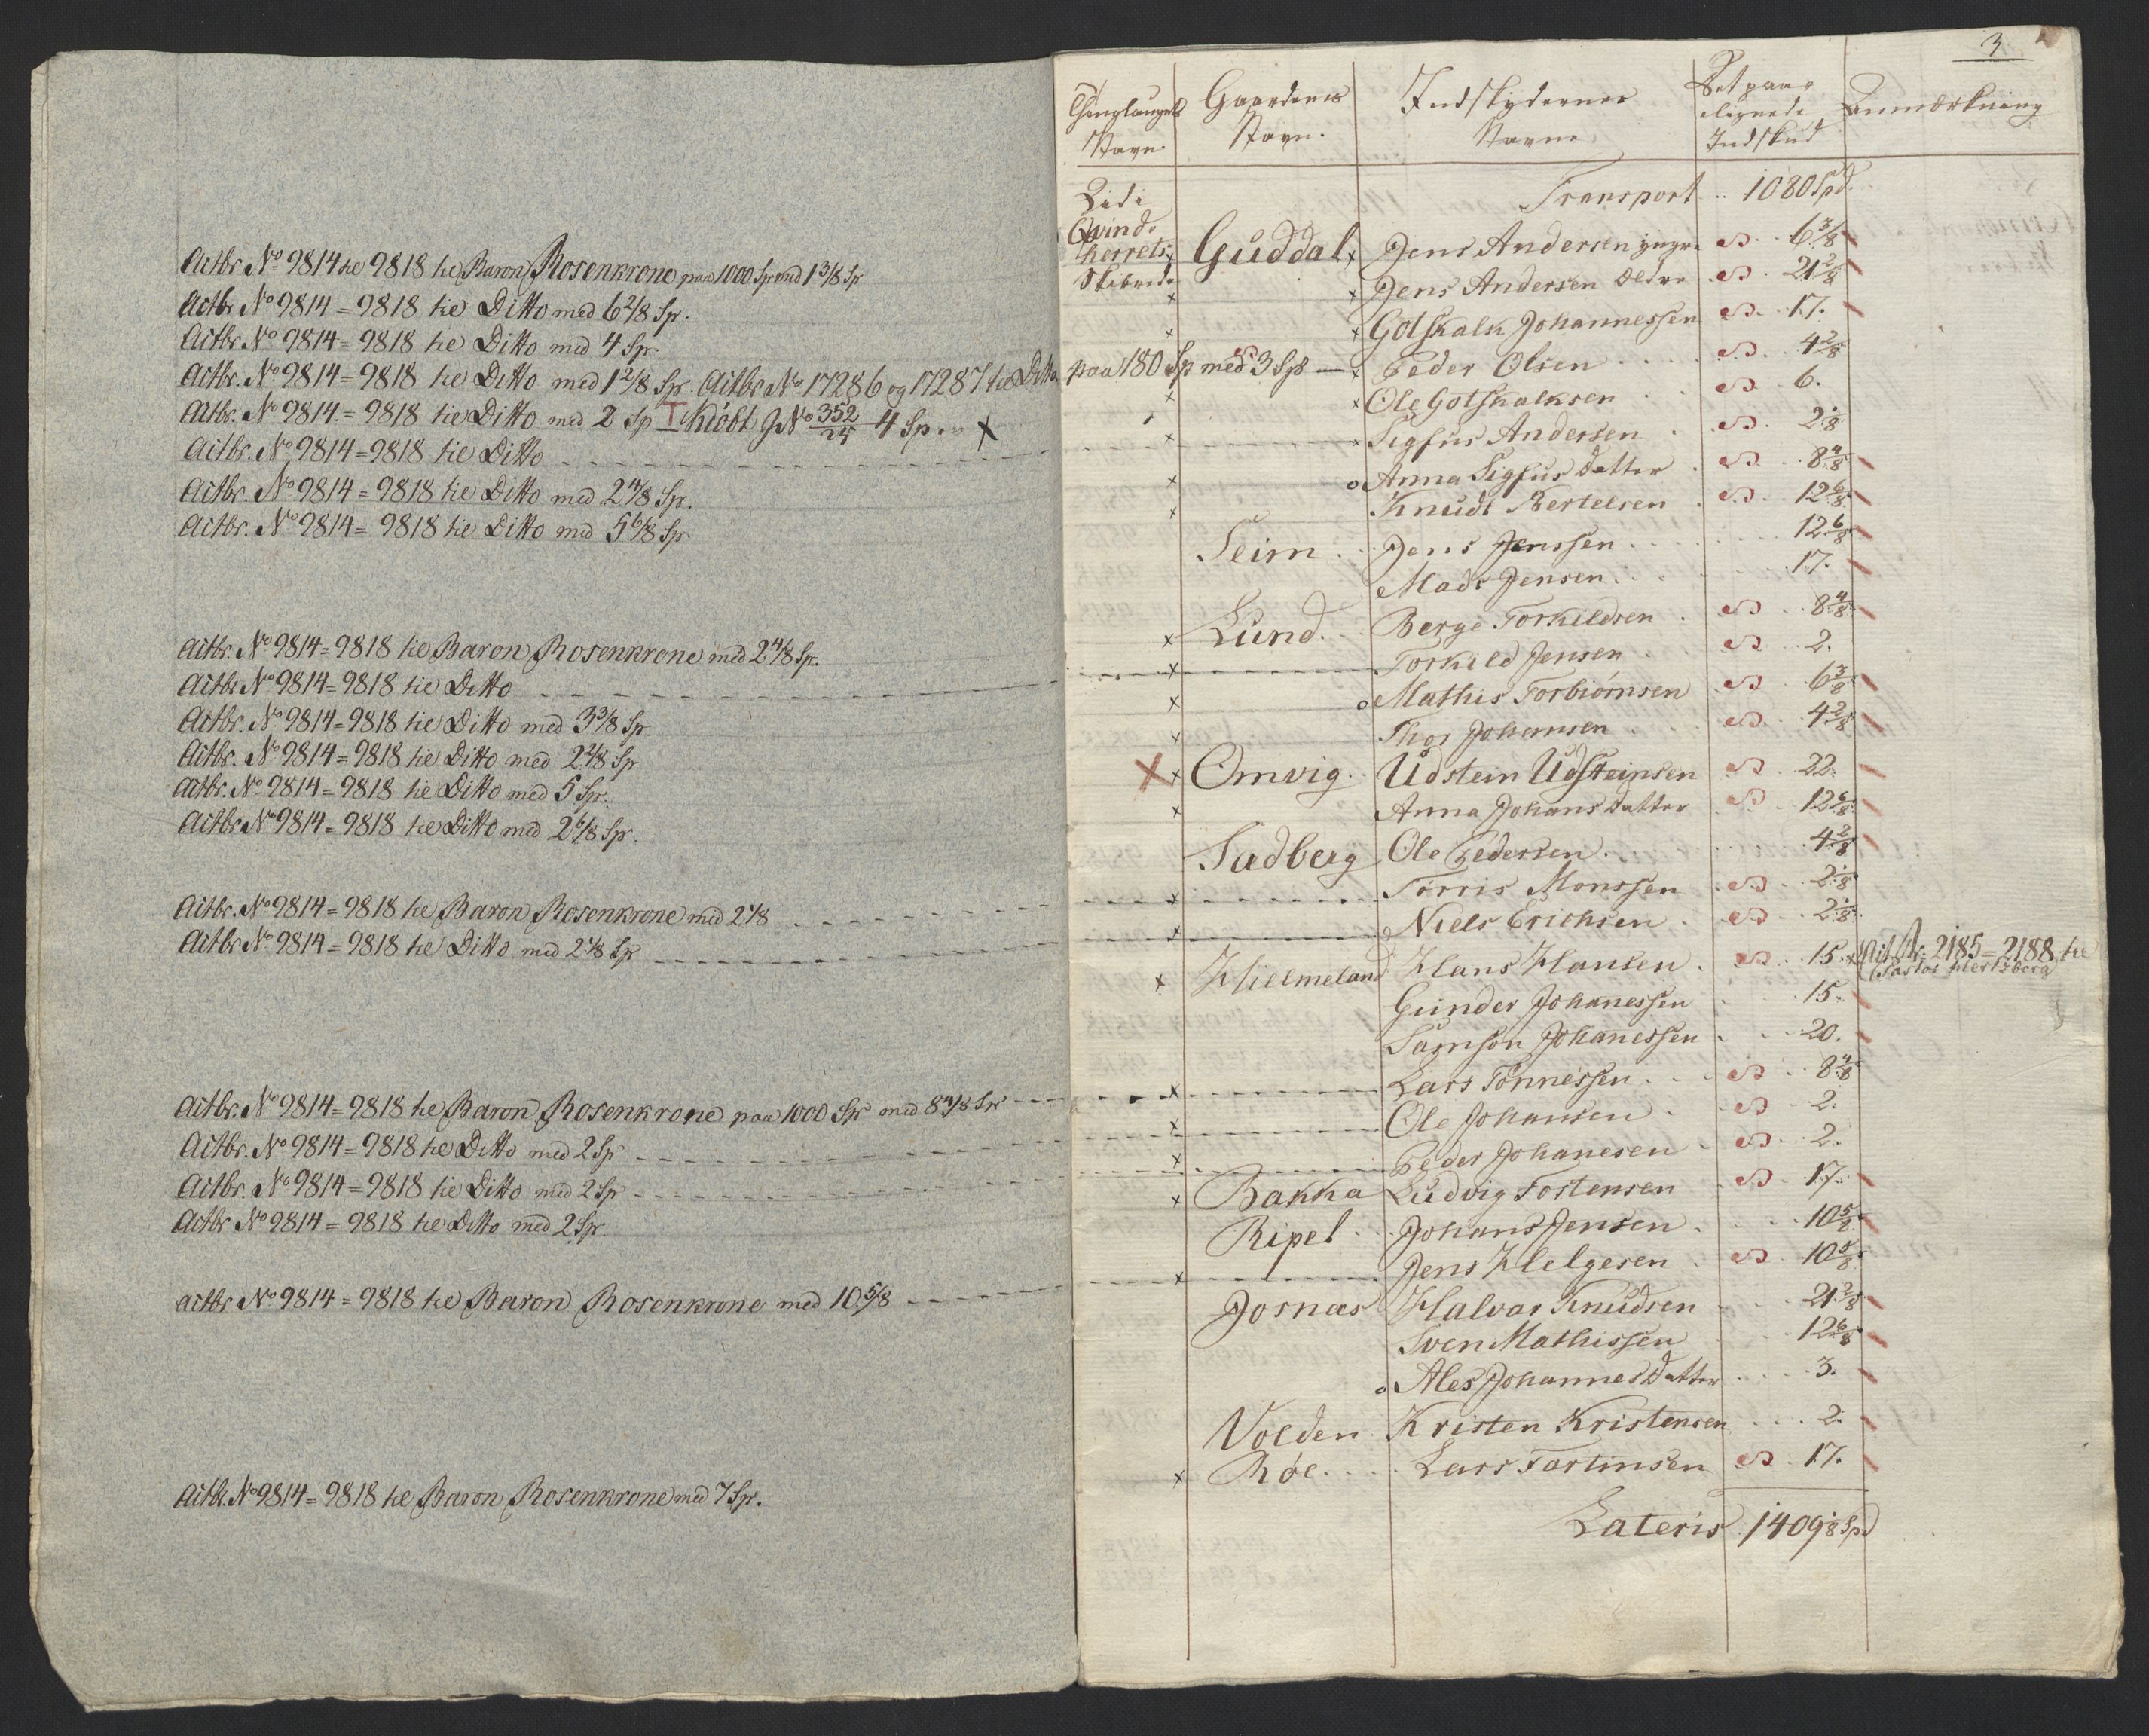 Actbr. No 9814 he 9818 he Baron Rosenkrone paa 1000 Sp med 1 3/8 Sp
Actbr No 9814 = 9818 he Ditto med 6 2/8 Sp.
Actbr. No 9814 = 9818 he Ditto med 4 Sp.
Actbr. No 9814 = 9818 he Ditto med 1 2/8 Sp. Actbr No 17286 og 17287 he Ditto paa 180 Sp med 3 Sp
Actbr. No 9814 = 9818 he Ditto med 2 Sp Kiöbt J No 352/24 4 Sp. x
Actbr. No 9814 = 9818 he Ditto
Actbr. No 9814 = 9818 he Ditto med 2 4/8 Sp.
Actbr. No 9814 = 9818 he Ditto med 5 6/8 Sp
Actbr. No 9814 = 9818 he Baron Rosenkrone med 2 4/8 Sp.
Actbr No 9814 = 9818 he Ditto
Actbr. No 9814 = 9818 he Ditto med 3 3/8 Sp
Actbr. No 9814 = 9818 he Ditto med 2 2/8 Sp
Actbr. No 9814 = 9818 he Ditto med 5 Sp.
Actbr No 9814 = 9818 he Ditto med 2 6/8 Sp.
Actbr. No 9814 = 9818 he Baron Rosenkrone med 2 1/8
Actbr No 9814 = 9818 he Ditto med 2 1/8 Sp
Actbr. No 9814 = 9818 he Baron Rosenkrone paa 1000 Sp med 8 4/8 Sp
Actbr. No 9814 = 9818 he Ditto med 2 Sp
Actbr. No 9814 = 9818 he Ditto med 2 Sp
Actbr No 9814 = 9818 he Ditto med 2 Sp.
Actbr No 9814 = 9818 he Baron Rosenkrone med 10 5/8
Actbr. No 9814 = 9818 he Baron Rosenkrone med 7 Sp.
3
Thinglaugets Navn. Gaardenes Navn. Indskydernes Navne Det paalignede Indskud Anmærkning
Transport 1080 Spd.
Qvindherrets Skibrede Guddal Jens Andersen yngre 6 3/8
Jens Andersen Ældre 21 2/8
Gotskalk Johannessen 17.
Peder Olsen 4 2/8
Ole Gotskalksen 6.
Sigfus Andersen 2 1/8
Anna Sigfus Datter 8 4/8
Knudt Bertelsen 12 6/8
Seim Jens Jenssen 12 6/8
Mads Jensen 17.
Lund. Berge Torkildsen 8 4/8
Torkild Jensen 2.
Mathis Torbiørnsen 6 3/8
Thor Johansen 4 2/8
Omvig. Udstein Udsteinsen 22.
Anna Johans Datter 12 6/8
Sadberg Ole Pedersen 4 2/8
Torris Monssen 2 1/8
Niels Erichsen 2 1/8
Hielmeland Hans Hansen 15. x Act Nr. 2185 = 2188 he
Pastor Hertzberg
Gunder Johanessen 15.
Samson Johanessen 20.
Lars Tønnessen 8 4/8
Ole Johansen 2.
Peder Johanesen 2.
Bakka Ludvig Tostensen 17.
Ripel Johans Jensen 10 5/8
Jens Helgesen 10 5/8
Jornæs Halvor Knudsen 21 2/8
Sven Mathissen 12 6/8
Ales Johannes Datter 3.
Volden Kristen Kristensen 2.
Röe Lars Tortinsen 17.
Lateris 1409 1/8 Spd